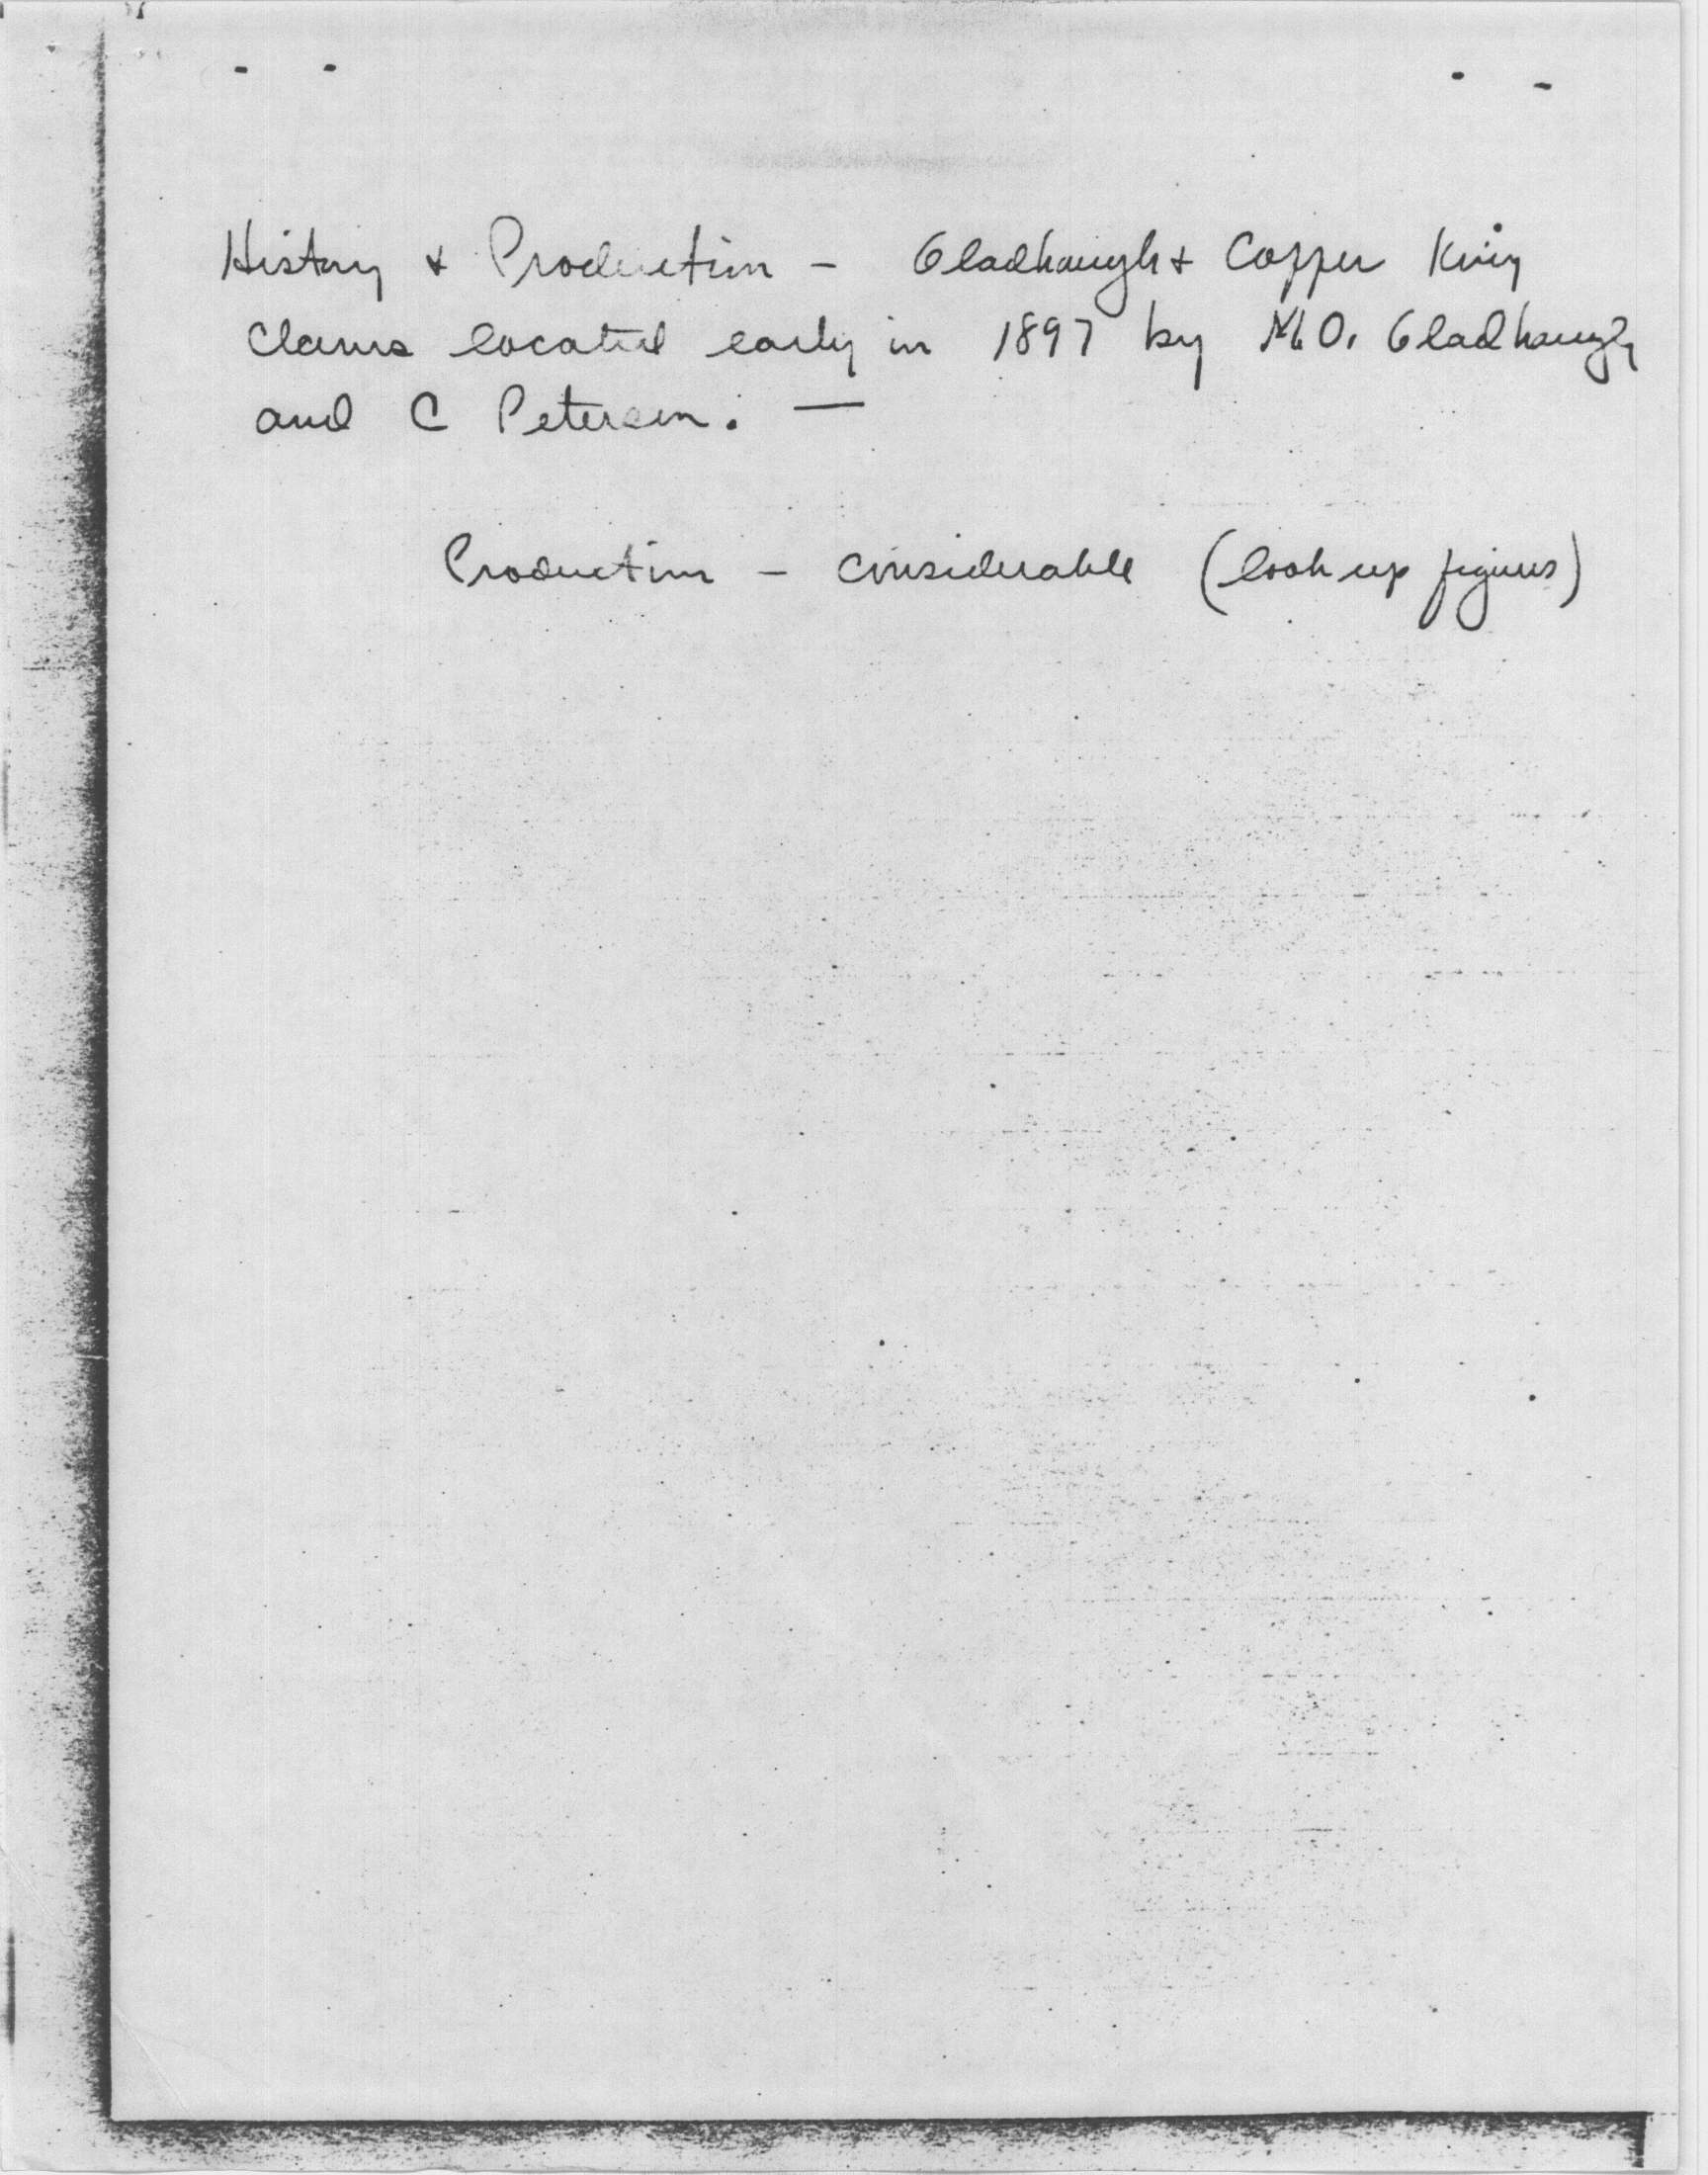 History & Production - Gladhaugh & Copper King
Claims located early in 1897 by M.O. Gladhaugh
and C Petersen. —
Production - considerable (look up figures)